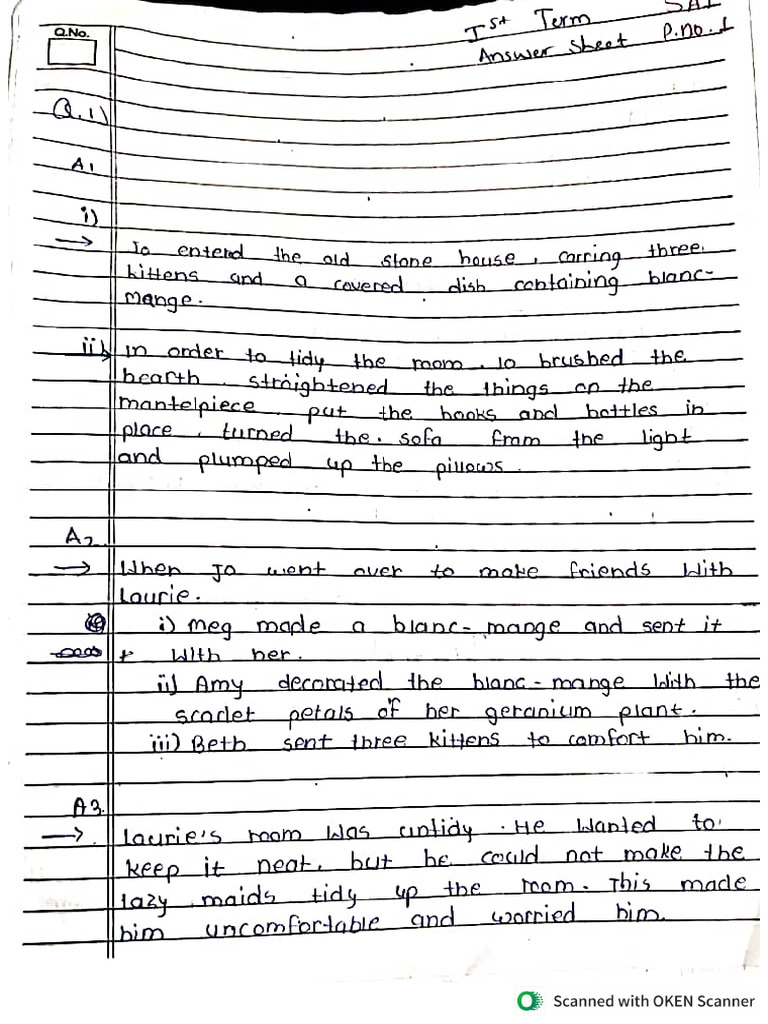 Ist Term SA1
Answer Sheet P.no.1
Q.No.
Q.1)
A1
i)
→ Jo enterd the old stone house, carring three
kittens and a covered dish containing blanc-
mange.
ii) In order to tidy the room, Jo brushed the
hearth, straightened the things on the
mantelpiece, put the books and bottles in
place, turned the sofa from the light
and plumped up the pillows.
A2
→ When Jo went over to make friends with
Laurie.
i) Meg made a blanc-mange and sent it
with her.
ii) Amy decorated the blanc-mange with the
scarlet petals of her geranium plant.
iii) Beth sent three kittens to comfort him.
A3.
→ Laurie's room was untidy. He wanted to
keep it neat, but he could not make the
lazy maids tidy up the room. This made
him uncomfortable and worried him.
Scanned with OKEN Scanner